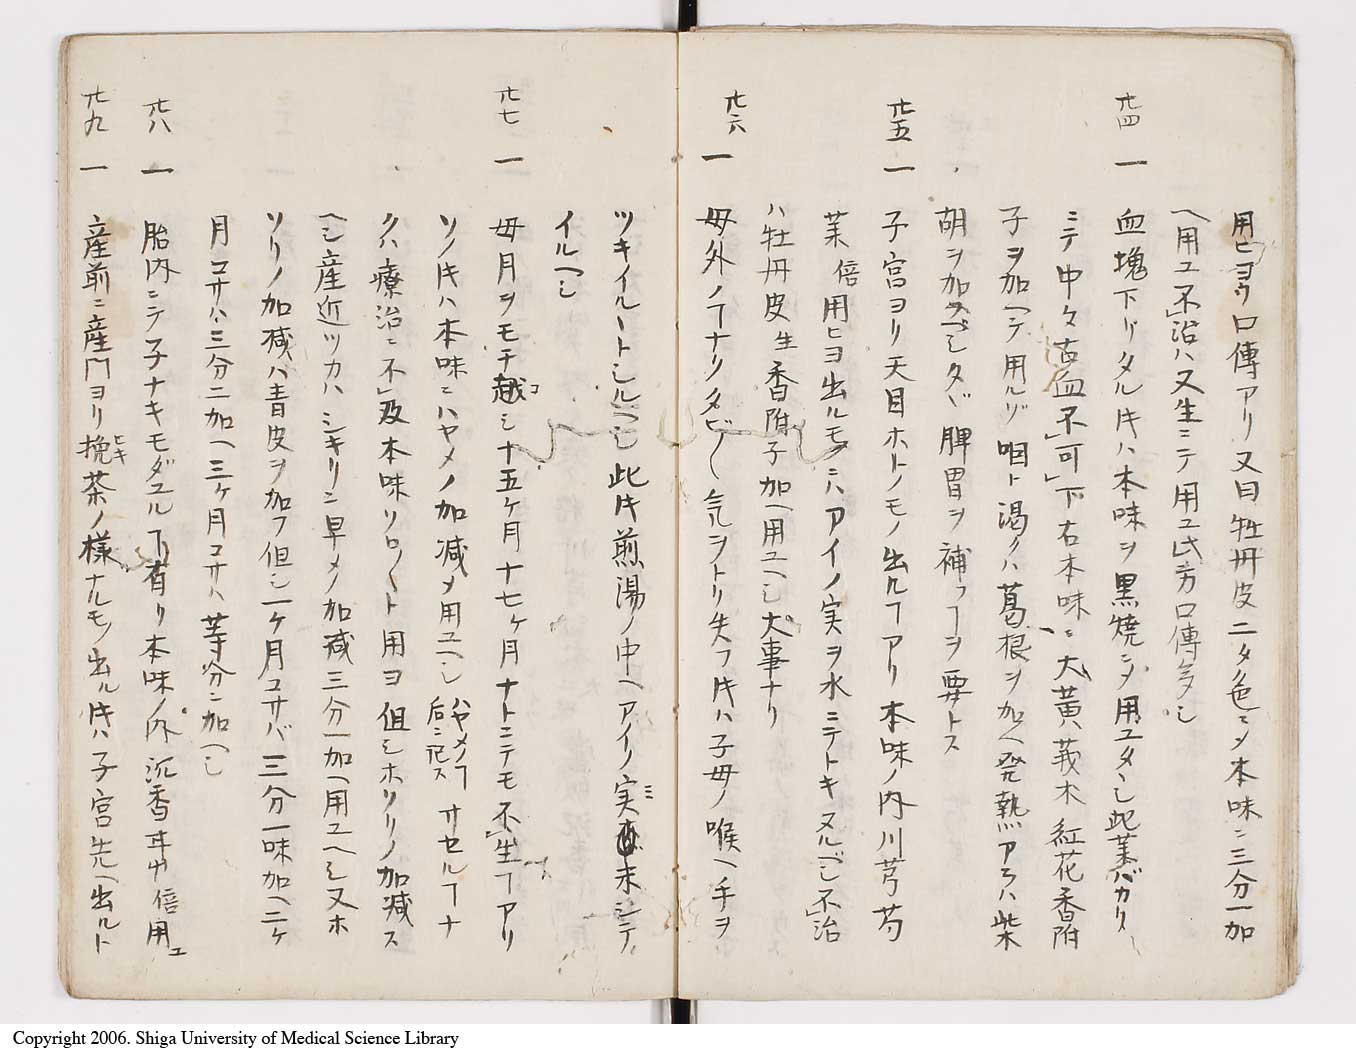 用ヒヨウ口傳アリ又曰牡丹皮ニタノ色ニメ本味ニ三分一加
ヘ用ユ不治ハ又生ニテ用ユ此方口傳多シ
廿四 一 血塊下リタル片ハ本味ヲ黒焼ニメ用ユタヽシ此薬バカリ
ニテ中々古血不可下右本味ニ大黄莪朮紅花香附
子ヲ加ヘテ用ルゾ咽ト渇ノハ葛根ヲ加ヘ発熱アラハ柴
胡ヲ加ヘシタヾ脾胃ヲ補フヿヲ要トス
廿五 一 子宮ヨリ天目ホトノモノ出ルヿアリ本味ノ内川芎芍
薬倍用ヒヨ出ルモノニハアイノ実ヲ水ニテトキヌルベシ不治
ハ牡丹皮生香附子加ヘ用ユヘシ大事ナリ
廿六 一 母外ノヿナリノタビ〳〵気ヲトリ失フ片ハ子母ノ喉ヘ手ヲ
ツキイルヽトシルヘシ此片煎湯ノ中ヘアイノ実ミ末シテ
イルヘシ
廿七 一 毎月ヲモチ越コシ十五ケ月十七ケ月ナトニテモ不生ヿアリ
ソノ片ハ本味ニハヤメノ加減メ用ユヘシ ハヤメノヿ后ニ記ス サセルヿナ
クハ療治ニ不及本味ソロ〳〵ト用ヨ但シホソリノ加減ス
ヘシ産近ツカハシキリニ早メノ加減三分一加ヘ用ユヘシ又ホ
ソリノ加減ハ青皮ヲ加フ但シ一ケ月コサバ三分一味加ヘ二ケ
月コサハ三分二加ヘ三ケ月コサハ等分ニ加ヘシ
廿八 一 胎内ニテ子ナキモダユルヿ有リ本味ノ内沉香耳中倍用ユ
廿九 一 産前ニ産門ヨリ挽ヒキ茶ノ様ナルモノ出ル片ハ子宮先ヘ出ルト
Copyright 2006. Shiga University of Medical Science Library